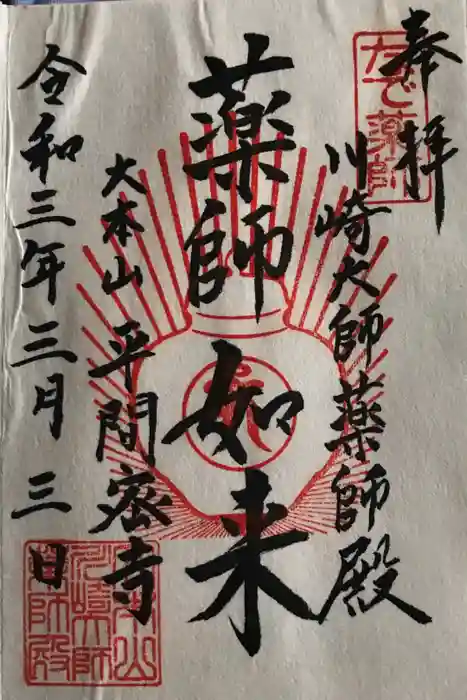 奉拝
なで薬師
川崎大師薬師殿
薬師如来
大本山 平間寺
令和三年三月三日